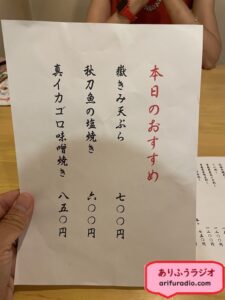 本日のおすすめ
嶽きみ天ぷら 七〇〇円
秋刀魚の塩焼き 六〇〇円
真イカゴロ味噌焼き 八五〇円
ありふうラジオ
arifuradio.com